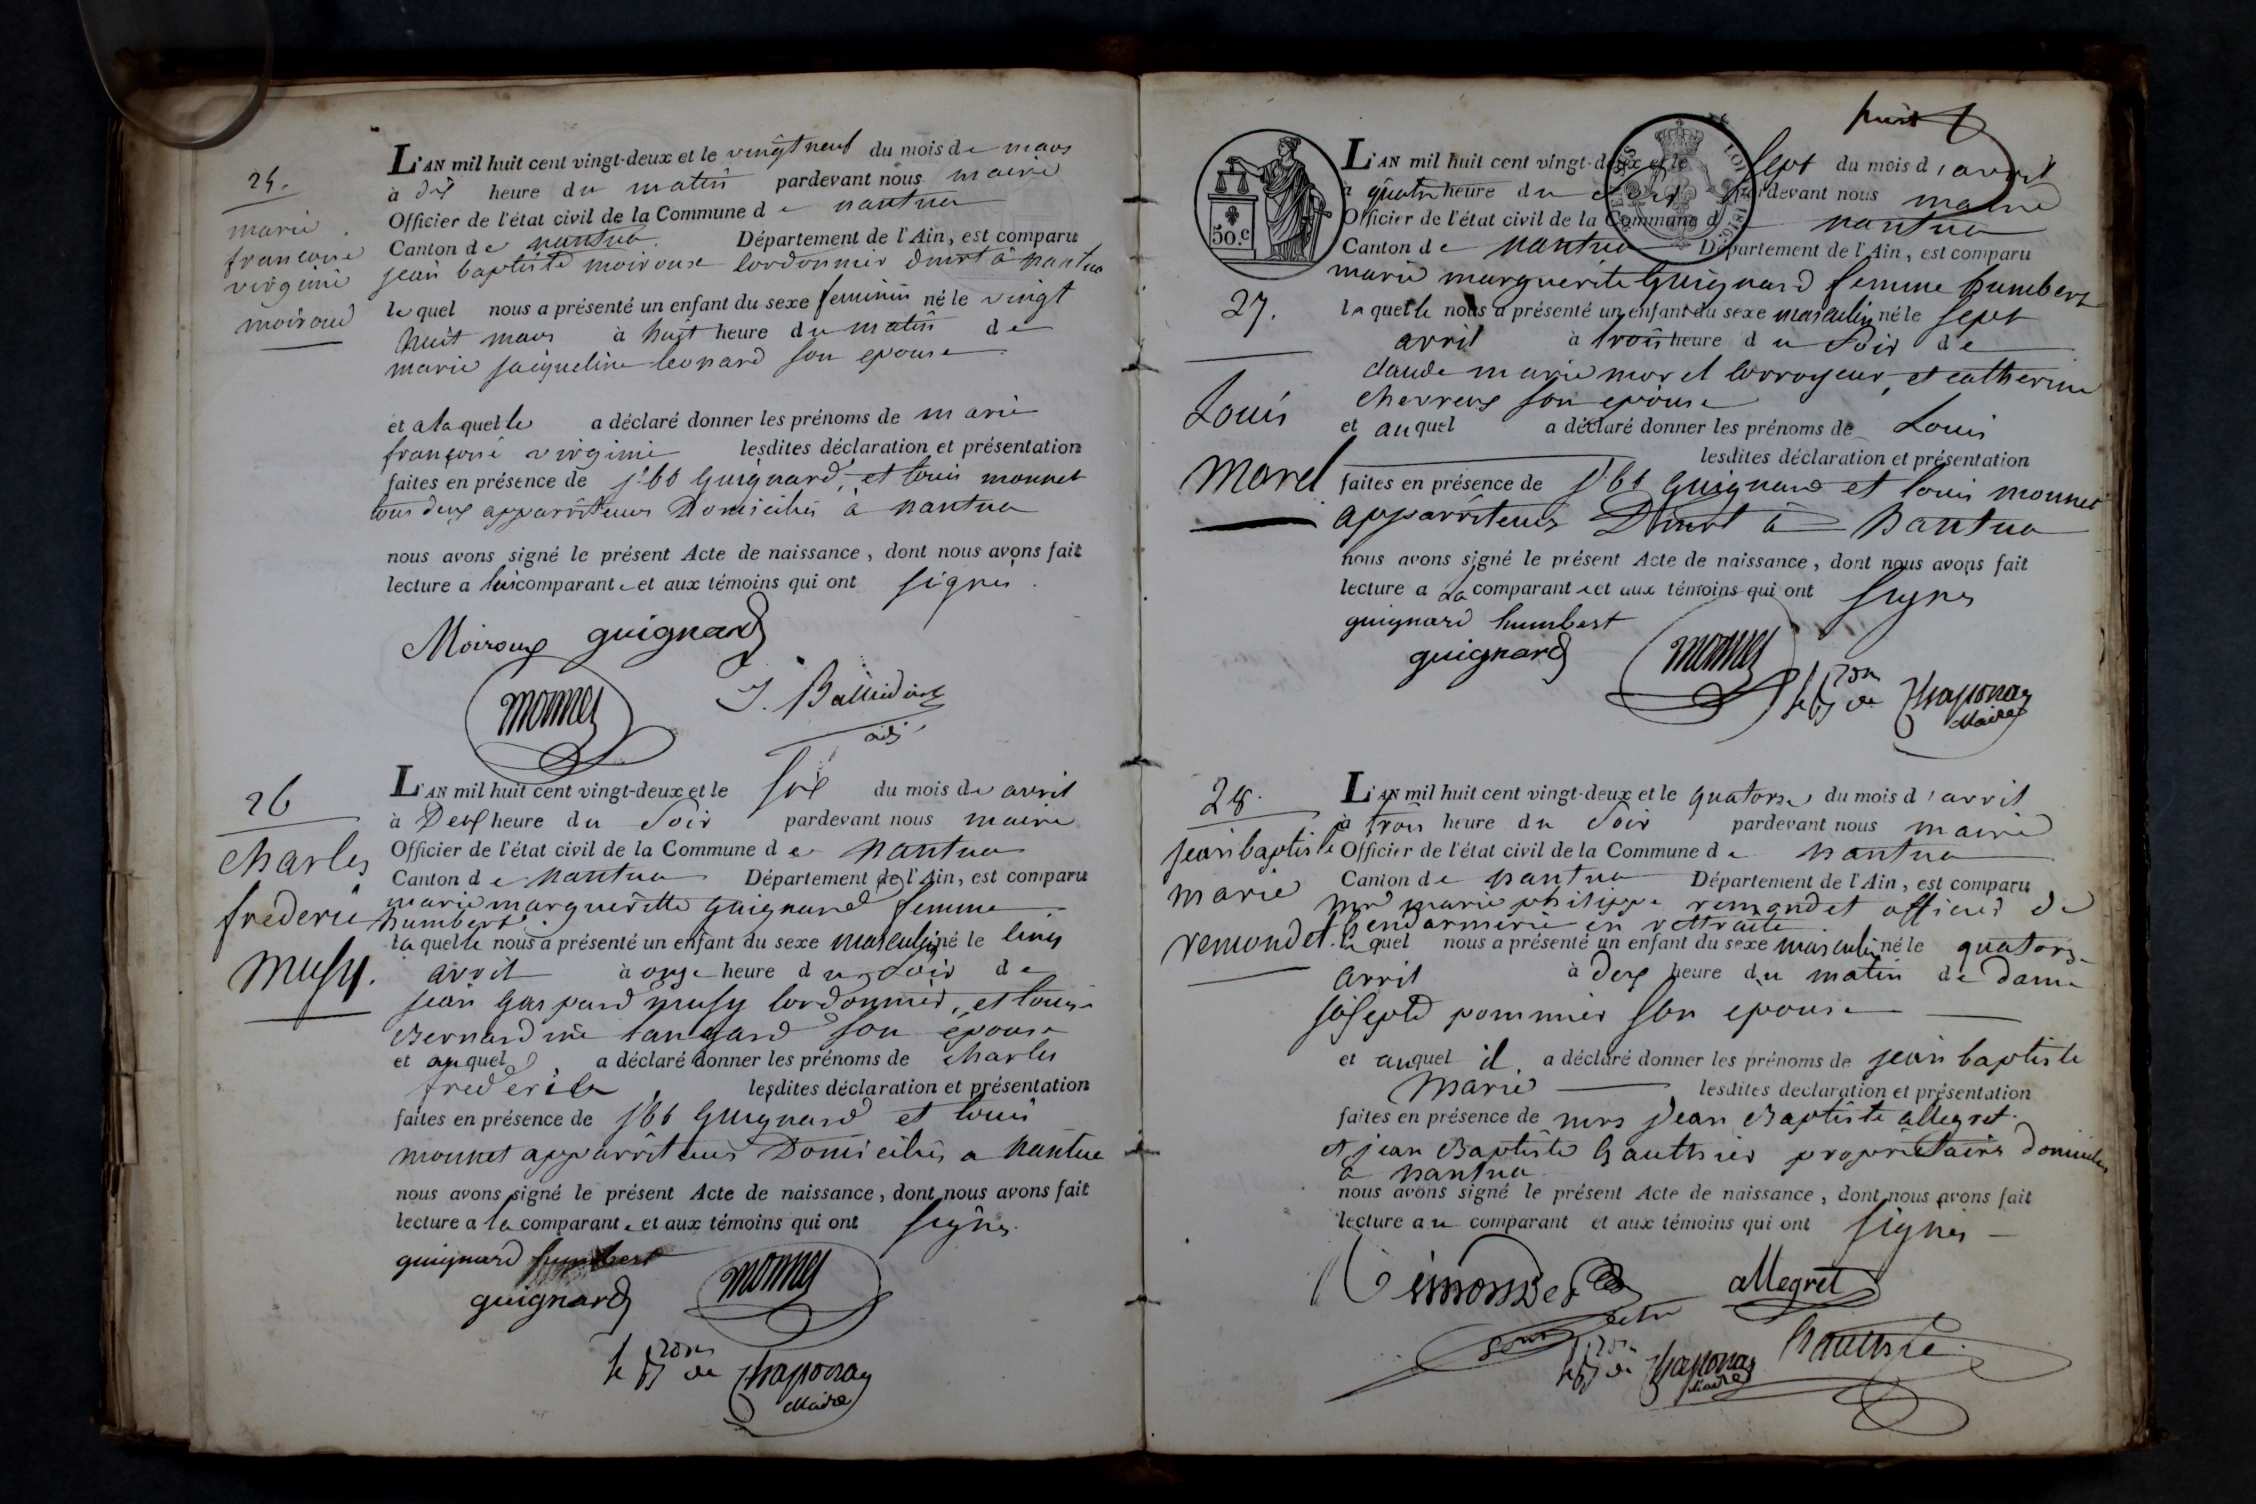 25.
marie
françoise
virginie
moiroud
L'AN mil huit cent vingt-deux et le vingt neuf du mois de mars
à dix heure du matin pardevant nous maire
Officier de l'état civil de la Commune de nantua
Canton de nantua Département de l'Ain, est comparu
jean baptiste moiroux cordonnier dmrt à nantua
lequel nous a présenté un enfant du sexe feminin né le vingt
huit mars à huit heure du matin de
marie jacqueline leonard son epouse
et a laquelle a déclaré donner les prénoms de marie
françoise virginie lesdites déclaration et présentation
faites en présence de jh Guignard, et louis monnet
tous deux apparriteurs Domiciliés à nantua
nous avons signé le présent Acte de naissance, dont nous avons fait
lecture a comparant et aux témoins qui ont signés.
Moiroux guignard
monnet
adj
26
charles
frederic
musy.
L'AN mil huit cent vingt-deux et le six du mois de avril
à Deux heure du Soir pardevant nous maire
Officier de l'état civil de la Commune de nantua
Canton de nantua Département de l'Ain, est comparu
marie margueritte Guignard femme
humbert
laquelle nous a présenté un enfant du sexe masculin né le cinq
avril à onze heure du Soir de
jean Gaspard musy cordonnier, et louise
Bernardine son epouse
et auquel a déclaré donner les prénoms de charles
frederick lesdites déclaration et présentation
faites en présence de jh Guignard et louis
monnet apparriteurs Domiciliés a nantua
nous avons signé le présent Acte de naissance, dont nous avons fait
lecture a la comparante et aux témoins qui ont signés.
guignard humbert
guignard monnet
le de Chaponay
Maire
huit
50.c
LOI 1816
27.
Louis
morel
L'AN mil huit cent vingt-deux et le Sept du mois d'avril
à quatre heure du soir pardevant nous maire
Officier de l'état civil de la Commune de nantua
Canton de nantua Département de l'Ain, est comparu
marie marguerite Guignard femme humbert
laquelle nous a présenté un enfant du sexe masculin né le sept
avril à trois heure du Soir de
claude marie morel corroyeur, et catherine
chevreux son epouse
et auquel a déclaré donner les prénoms de Louis
lesdites déclaration et présentation
faites en présence de jh Guignard et louis monnet
apparriteurs Dmrt à Nantua
nous avons signé le présent Acte de naissance, dont nous avons fait
lecture a La comparante et aux témoins qui ont Signés
guignard humbert
guignard monnet
le de Chaponay
Maire
28.
jean baptiste
marie
remondet.
L'AN mil huit cent vingt-deux et le quatorze du mois d'avril
à trois heure du Soir pardevant nous maire
Officier de l'état civil de la Commune de nantua
Canton de nantua Département de l'Ain, est comparu
mr marie philippe remondet officier de
Gendarmerie en rettraite
lequel nous a présenté un enfant du sexe masculin né le quatorze
avril à Deux heure du matin de Dame
josephe pommier son epouse
et auquel il a déclaré donner les prénoms de jean baptiste
Marie lesdites declaration et présentation
faites en présence de mrs Jean Baptiste allegret.
et jean Baptiste Gauthier propriétaires domiciliés
à nantua
nous avons signé le présent Acte de naissance, dont nous avons fait
lecture au comparant et aux témoins qui ont signés
Rémondet allegret
le de Chaponay
Maire